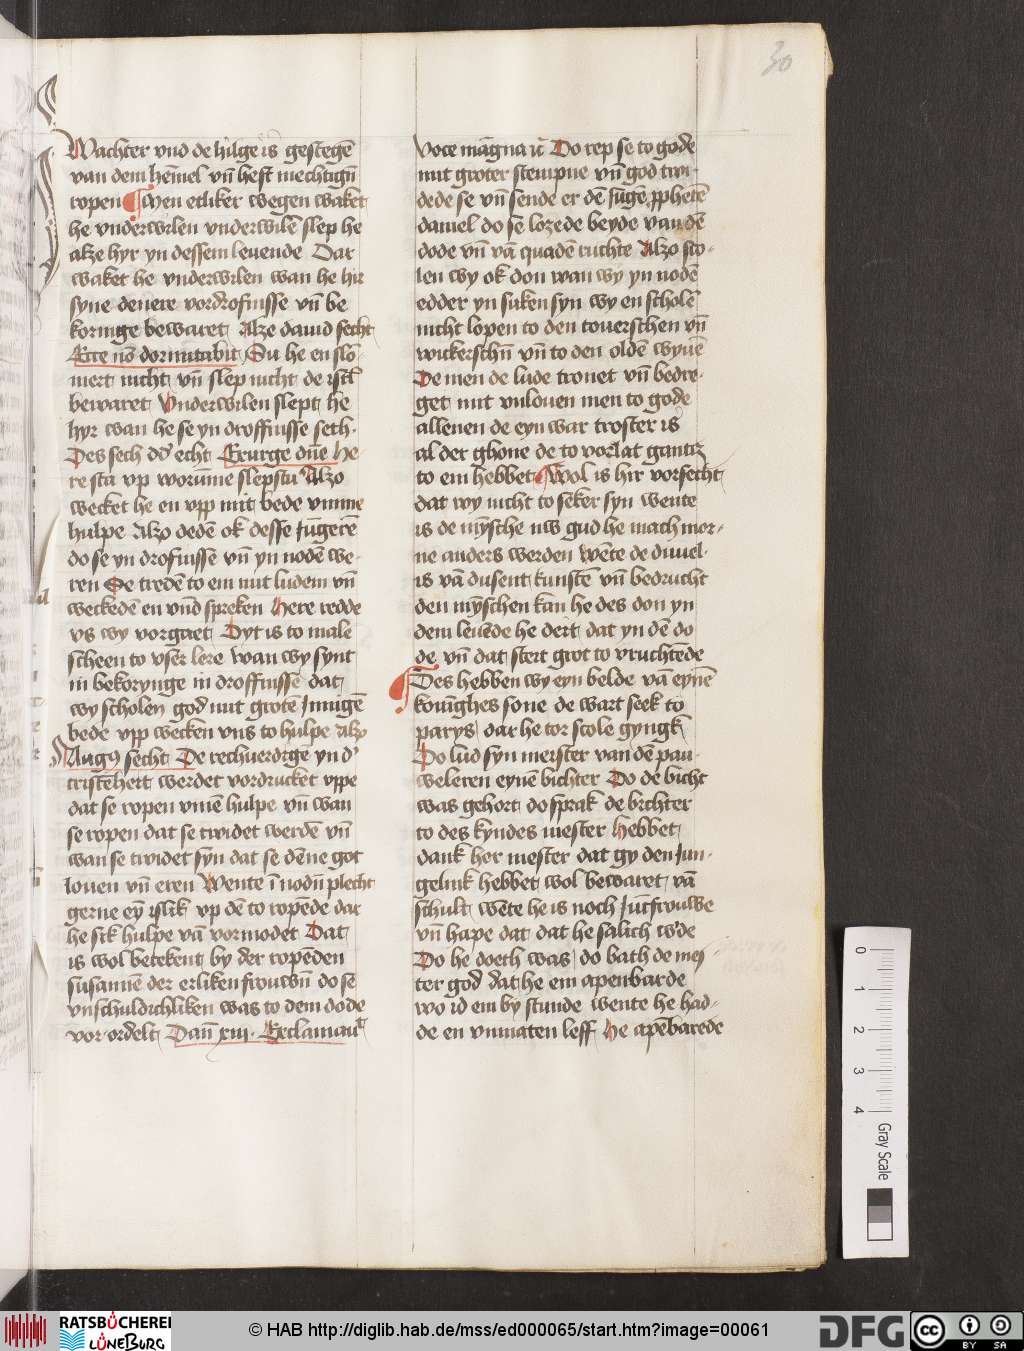 30
Wachter vnd de hilge is gestegē
van dem hēmel vn̄ heft mechtign̄
ropen Men etliker wegen waket
he vnderwilen vnderwilē slep he
alze hyr yn dessem leuende Dar
waket he vnderwilen wan he hir
syne denere vordrofnisse vn̄ be
koringe bewaret Alze dauid secht
Ecce nō dormitabit Su he en slō-
mert nicht vn̄ slep nicht de isrl̄
bewaret Vnderwilen slept he
hyr wan he se yn droffnisse seth.
Des sech dd̄ echt Exurge dn̄e He-
re sta vp worūme slepstu Alzo
wecket he en vpp mit bede vmme
hulpe Alzo dedē ok desse Jūgerē
do se yn drofnisse vn̄ yn nodē we-
ren Se tredē to em mit ludem vn̄
weckedē en vnd spreken Here redde
vs wy vorgaet Dyt is to male
scheen to vser lere wan wy synt
in bekorynge in droffnisse dat
wy scholen god mit grotē Jnnigē
bede vpp wecken vns to hulpe Alzo
Augꝰ secht De rechuerdige yn dʼ
cristēheit werdet vordrucket vppe
dat se ropen vmē hulpe vn̄ wan
se ropen dat se twidet werdē vn̄
wan se twidet syn dat se dēne got
louen vn̄ eren Wente ī nodn̄ plecht
gerne eȳ islik vp dē to ropēde dar
he sik hulpe vā vormodet Dat
is wol betekent by der ropēden
susannē der erliken frouwn̄ do se
vnschuldichliken was to dem dode
vor ordelt Dan̄ xiii. Exclamauit
Voce māgna &c̄ Do rep se to gode
mit groter stempne vn̄ god twi-
dede se vn̄ sende er dē Jūgē ꝓphetē
daniel do sē lozede beyde van dē
dode vn̄ vā quadē ruchte Alzo sco-
len wy ok don wan wy yn nodē
edder yn suken syn wy en scholē
nicht lopen to den touerschen vn̄
wickerschn̄ vn̄ to den oldē wyuē
De men de lude trouet vn̄ bedre-
get mit vnlouen men to gode
alleuen de eyn war troster is
al der ghone de to vorlat gantz
to em hebbet Wol is hir vorsecht
dat wy nicht to seker syn wente
is de mȳsche nw gud he mach mor-
ne anders werden wēte de duuel
is vā dusent kunstē vn̄ bedrucht
den mȳschen kan he des don yn
dem leuēde he deit dat yn dē do
de vn̄ dat stert grot to vruchtēde
Des hebben wy eyn belde vā eynē
konīghes sone de wart seek to
parys dar he tor scole gyngk
Do lud syn meister van dē pau-
weleren eynē bichter Do de bicht
was gehort do sprak de bichter
to des kyndes mester Hebbet
dank her mester dat gy den Jun-
gelink hebbet wol bewaret vā
schult wēte he is noch Jūcfrouwe
vn̄ hape dat dat he salich wʼde
Do he doeth was do bath de mei-
ster god dat he em apenbarde
wo id em by stunde wente he had-
de en vnmaten leff He apēbarede
0
1
2
3
4
Gray Scale
RATSBÜCHEREI
LÜNEBURG
© HAB http://diglib.hab.de/mss/ed000065/start.htm?image=00061
DFG
cc
BY SA